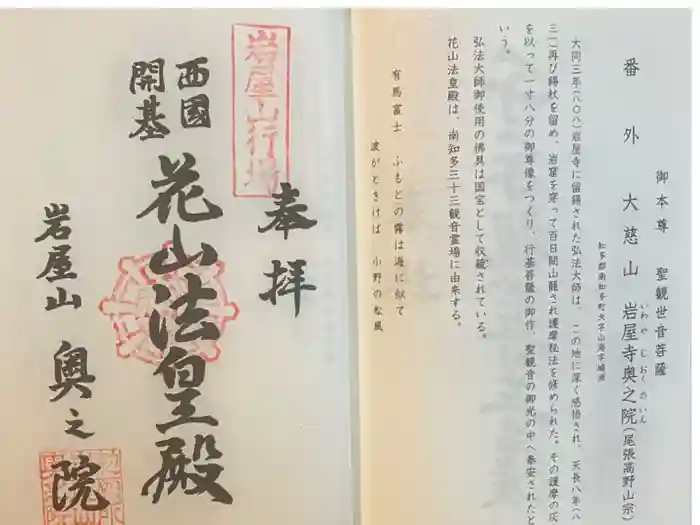 御本尊 聖観世音菩薩
番外 大慈山 岩屋寺奥之院(尾張高野山宗)
いわや じ おくのいん
知多郡南知多町大字山海字城洲
大同三年(八〇八)岩屋寺に留錫された弘法大師は、この地に深く感悟され、天長八年(八
三一)再び錫杖を留め、岩窟を穿って百日間山籠され護摩秘法を修められた。その護摩の灰
を以って一寸八分の御尊像をつくり、行基菩薩の御作、聖観音の御光の中へ奉安されたと
いう。
弘法大師御使用の佛具は国宝として収蔵されている。
花山法皇殿は、南知多三十三観音霊場に由来する。
有馬富士 ふもとの霧は海に似て
波かときけば 小野の松風
奉拝
岩屋山行場
西國
開基
花山法皇殿
岩屋山 奥之院